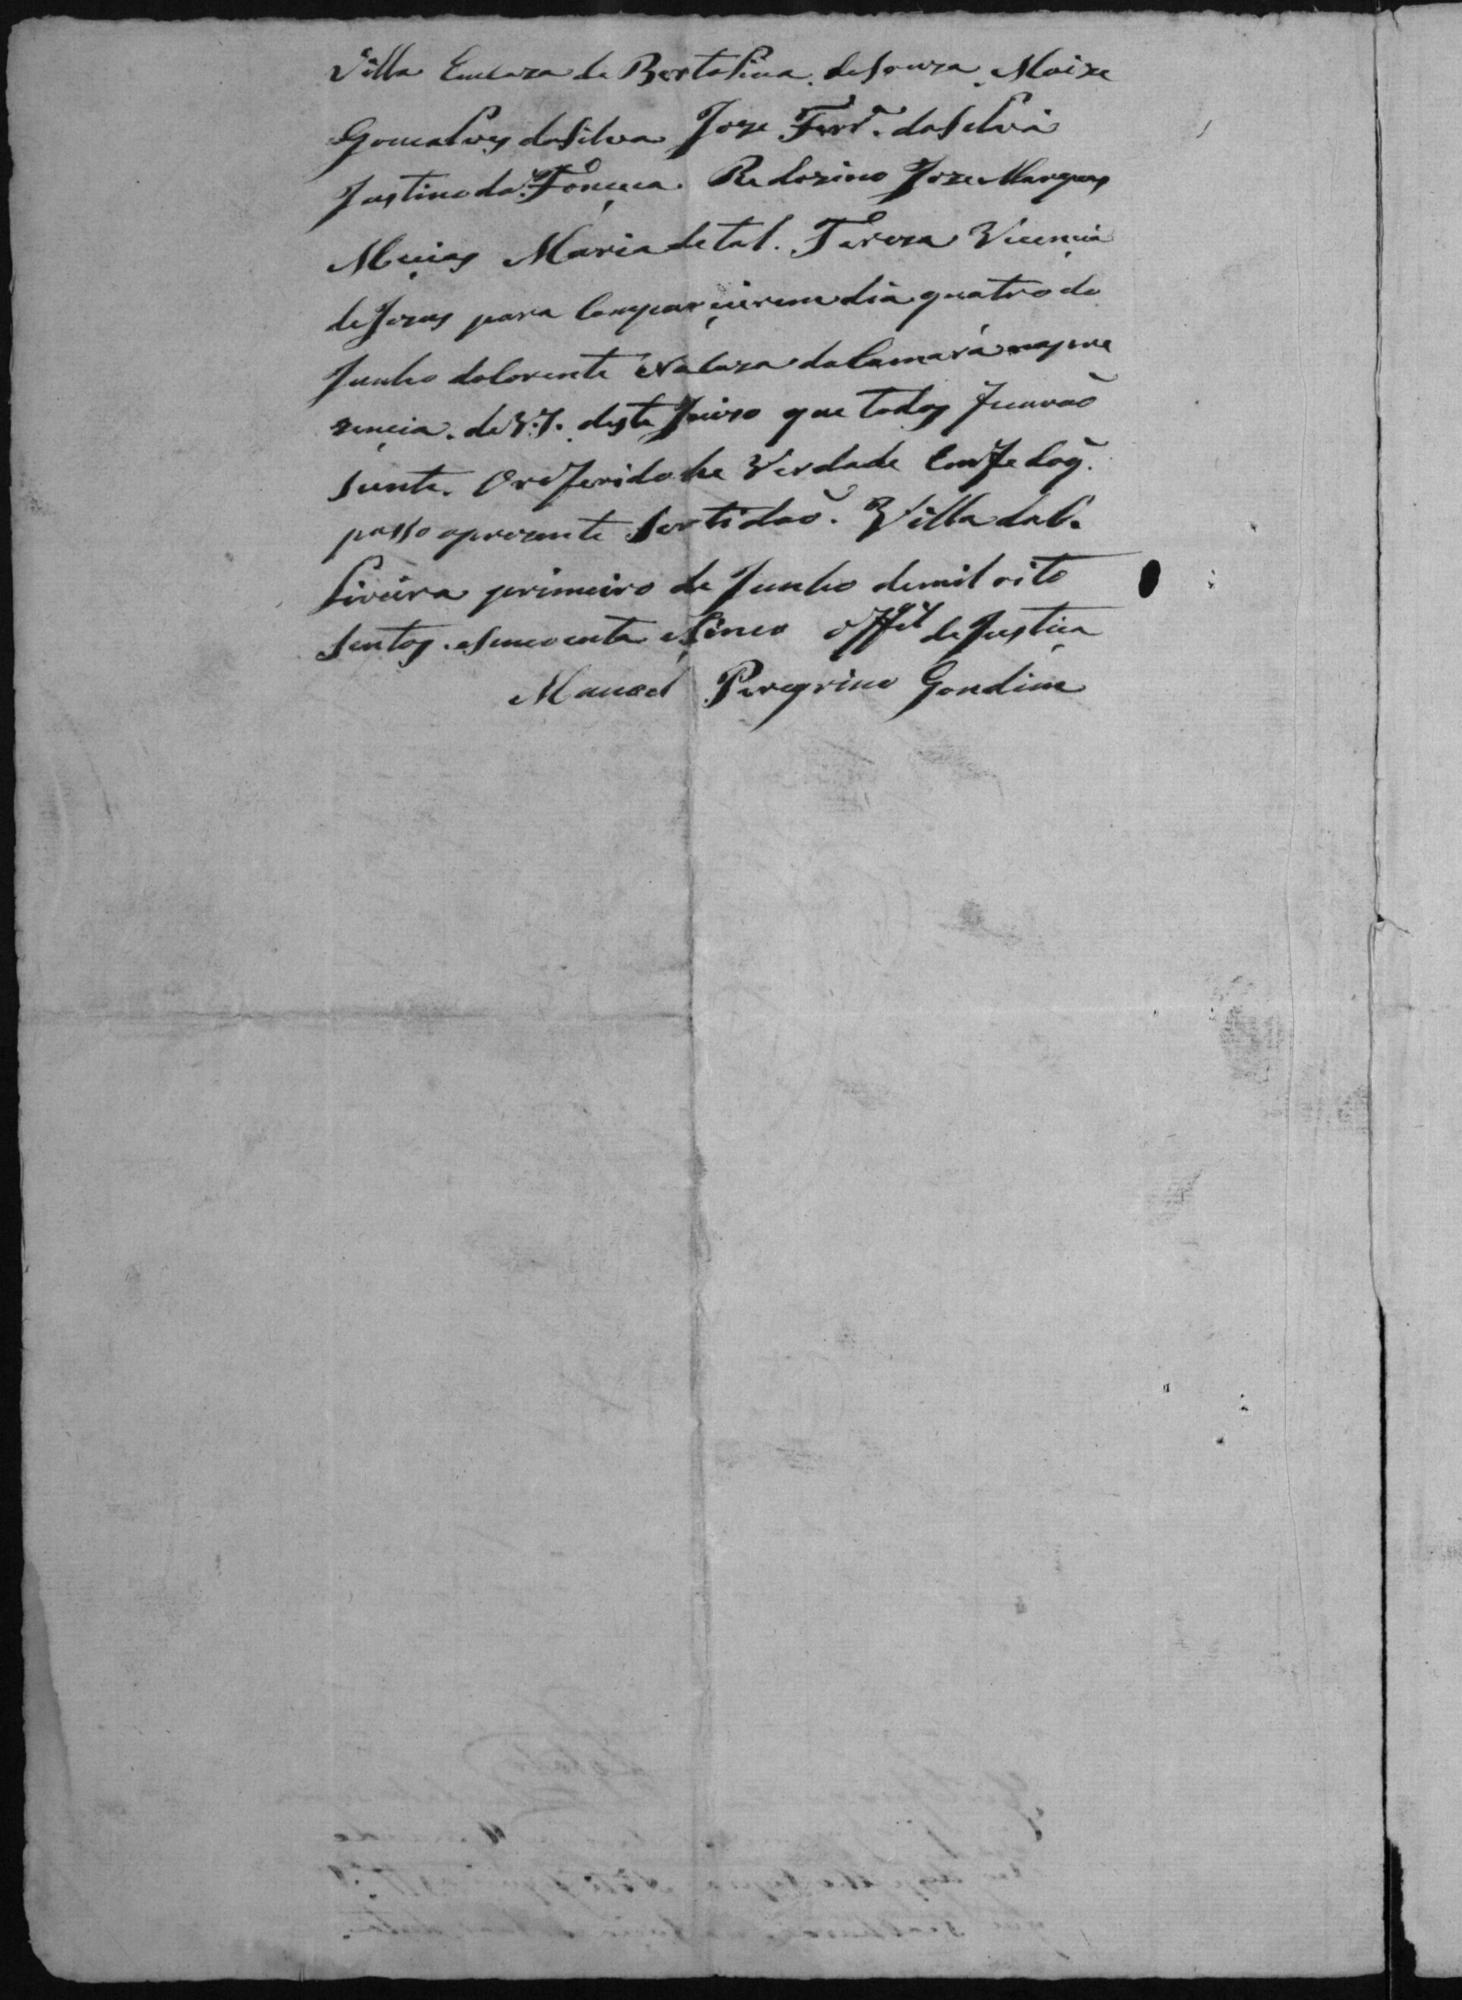 Villa Emcaza de Bertolina de Souza Moize
Goncalves da Silva Joze Ferr.ª da Silva
Justino da Fonçeca Redozino Joze Marques
Meçias Maria de tal. Tereza Vicençia
de Jezus para Compareçerem dia quatro do
Junho do Corente Na Caza da Camara na pre
zençia. de V.S. deste Juizo que todos ficarão
siente. O referido he Verdade Em fe do q̃
passo aprezente Sertidão. Villa da C.
liveira primeiro de Junho de mil oito
sentos. e Sincoenta e Sinco offi.al de Justiça
Manoel Peregrino Gondim